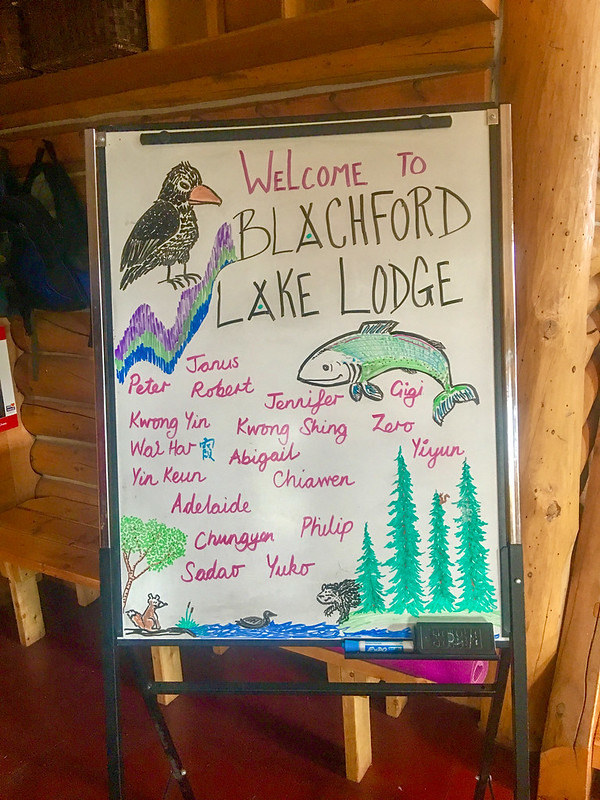 WELCOME TO
BLACHFORD
LAKE LODGE
Janus
Peter Robert Jennifer Gigi
Kwong Yin Kwong Shing Zero
Wai Har Abigail Yiyun
Yin Keun Chiawen
Adelaide
Chungyen Philip
Sadao Yuko
EXPO